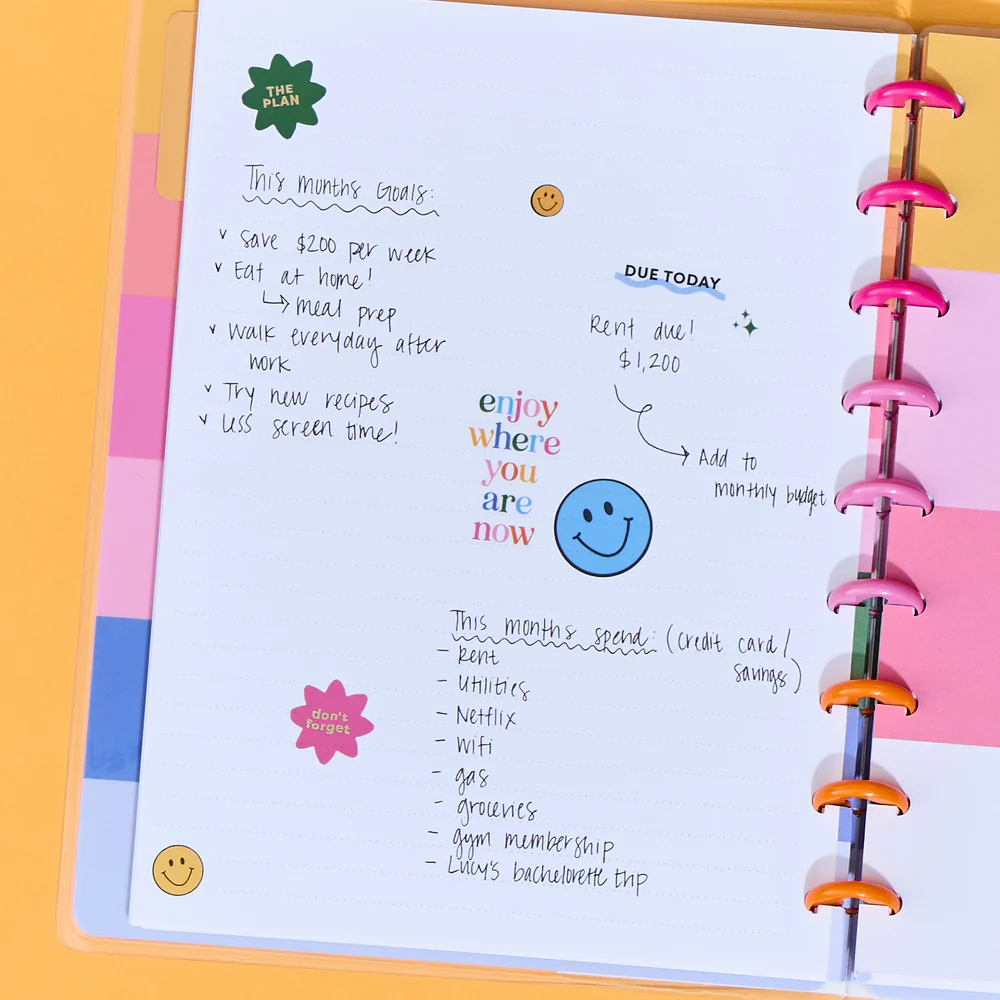 THE
PLAN
This months Goals:
v Save $200 per week
v Eat at home!
↳ meal prep
v Walk everyday after
work
v Try new recipes
v Less screen time!
DUE TODAY
Rent due!
$1,200
Add to
monthly budget
enjoy
where
you
are
now
This months spend: (credit card/
savings)
- Rent
- Utilities
- Netflix
- wifi
- gas
- groceries
- gym membership
- Lucy's bachelorette trip
don't
forget